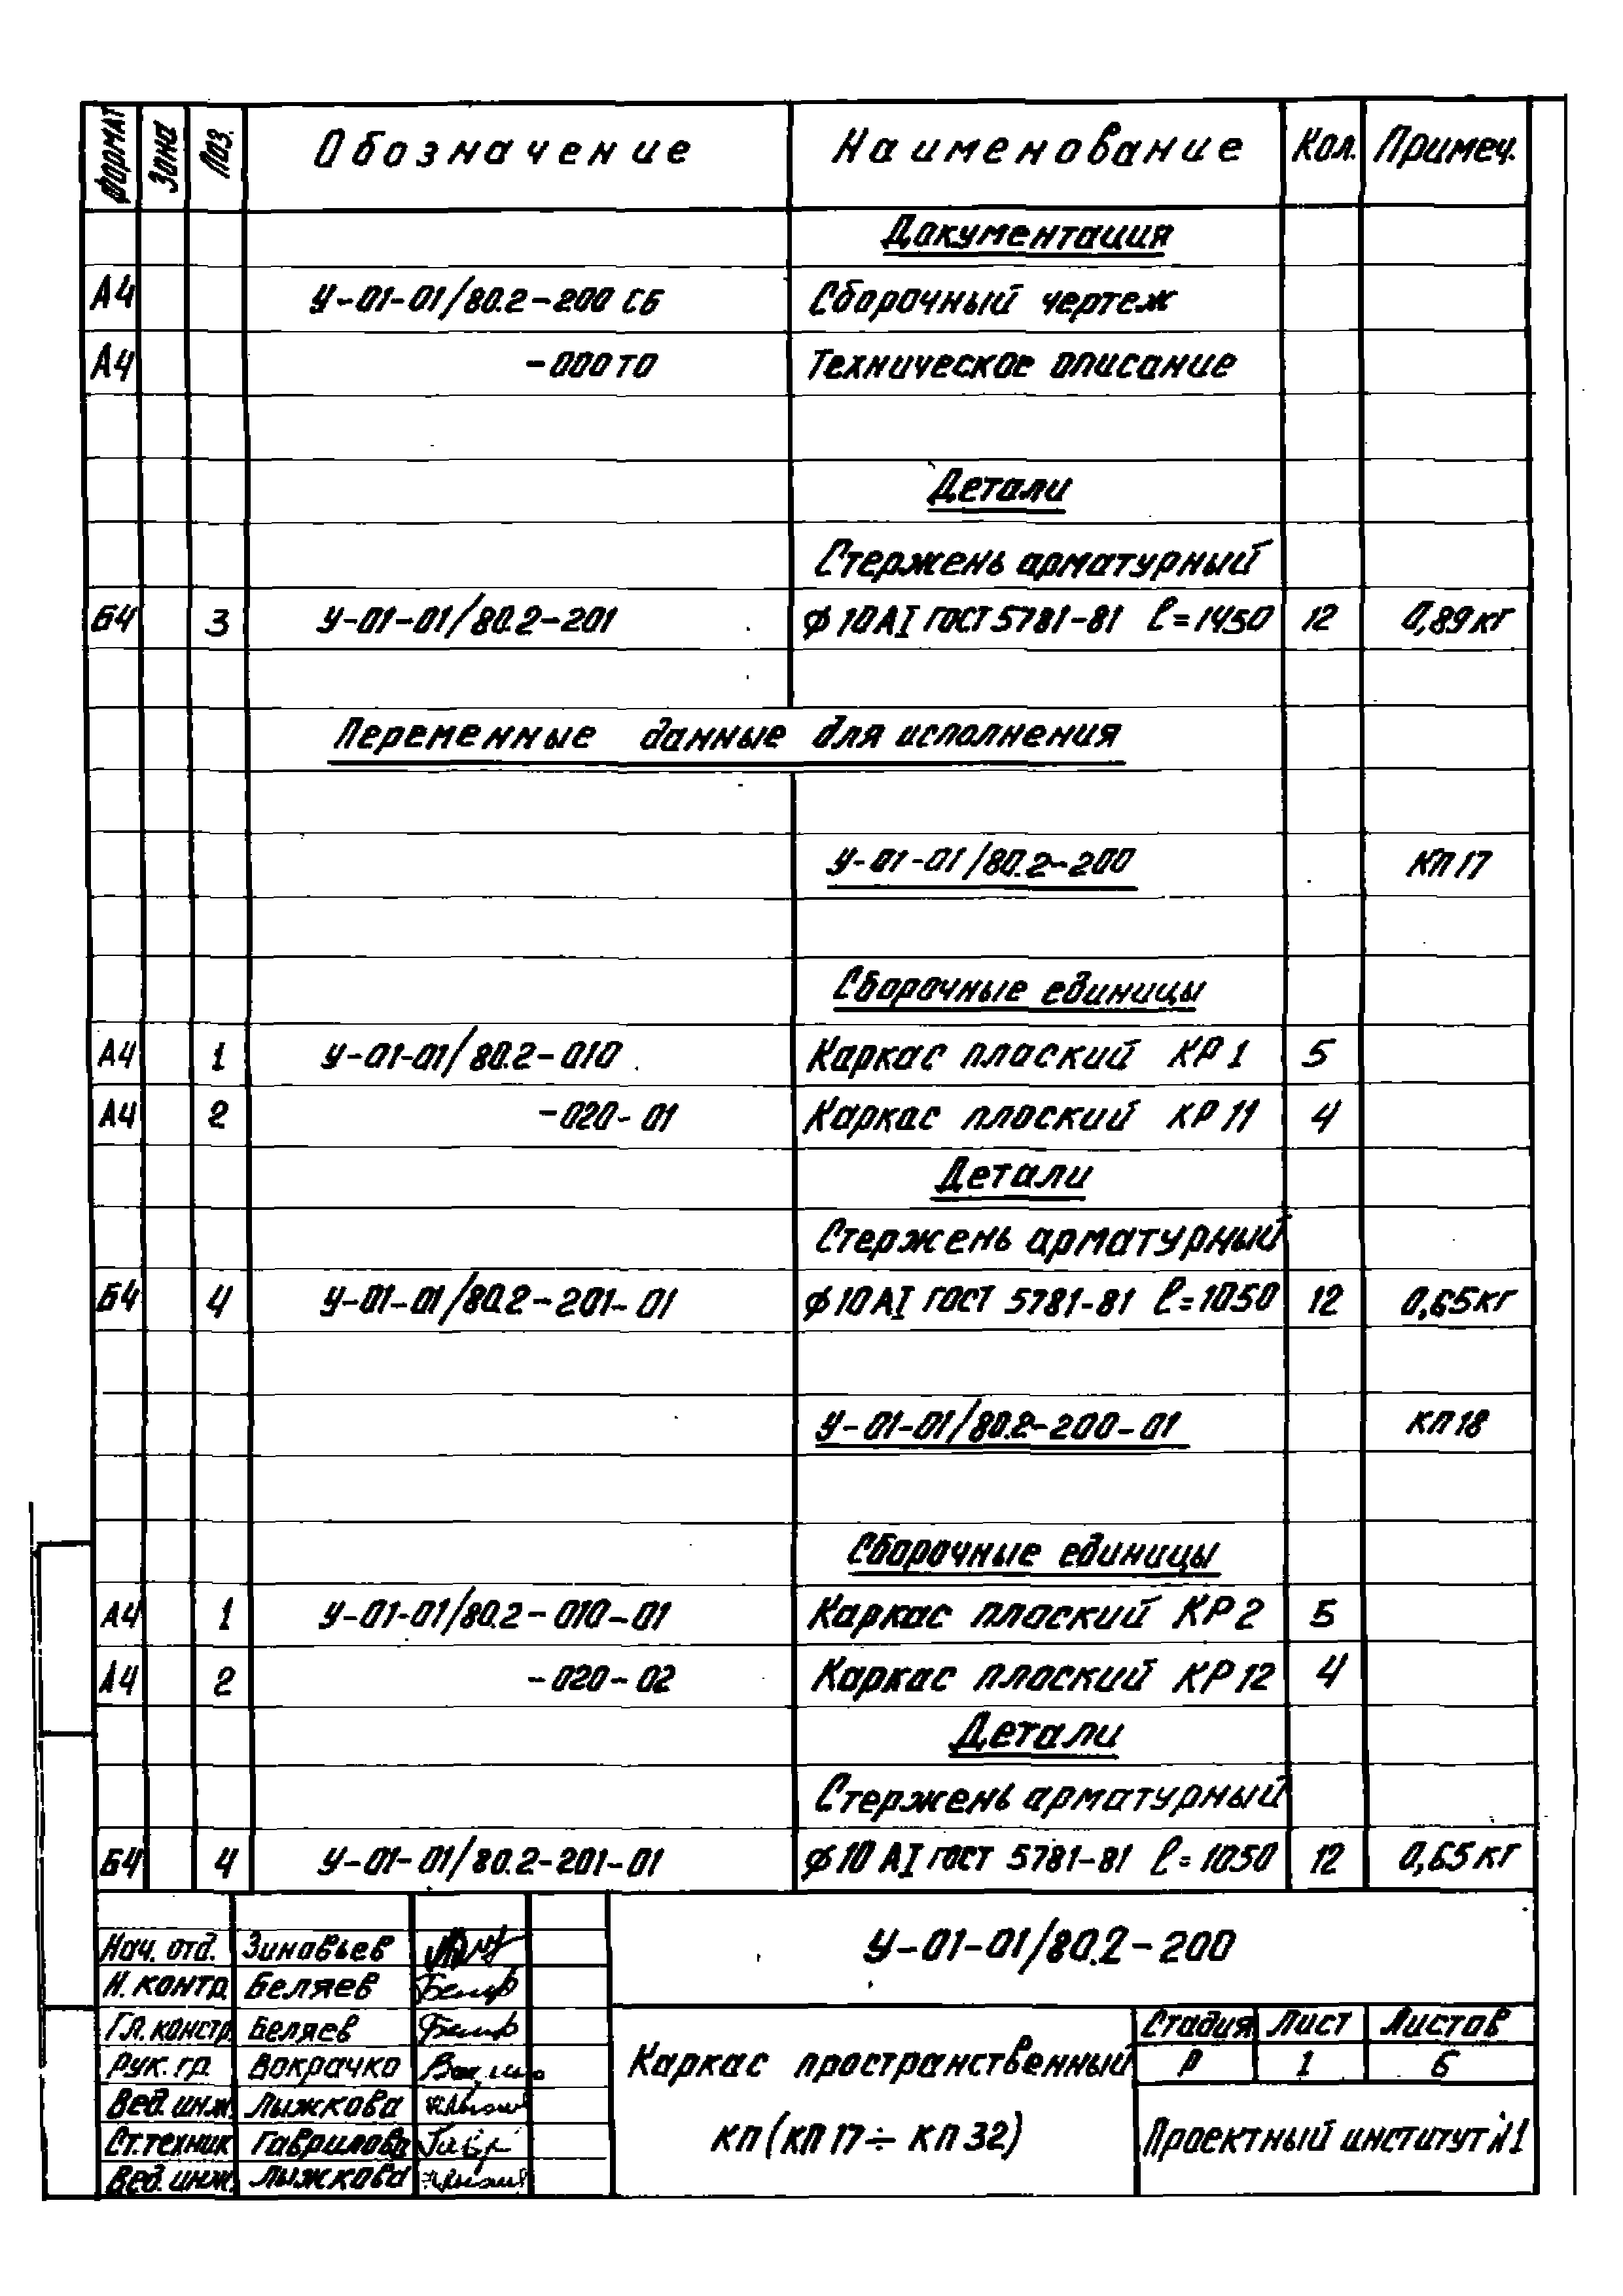 Формат Зона Поз. Обозначение Наименование Кол. Примеч.
Документация
А4 У-01-01/80.2-200 СБ Сборочный чертеж
А4 -000 ТО Техническое описание
Детали
Стержень арматурный
Б4 3 У-01-01/80.2-201 ϕ10АI ГОСТ 5781-81 ℓ=1450 12 0,89кг
Переменные данные для исполнения
У-01-01/80.2-200 КП17
Сборочные единицы
А4 1 У-01-01/80.2-010 Каркас плоский КР1 5
А4 2 -020-01 Каркас плоский КР11 4
Детали
Стержень арматурный
Б4 4 У-01-01/80.2-201-01 ϕ10АI ГОСТ 5781-81 ℓ=1050 12 0,65кг
У-01-01/80.2-200-01 КП18
Сборочные единицы
А4 1 У-01-01/80.2-010-01 Каркас плоский КР2 5
А4 2 -020-02 Каркас плоский КР12 4
Детали
Стержень арматурный
Б4 4 У-01-01/80.2-201-01 ϕ10АI ГОСТ 5781-81 ℓ=1050 12 0,65кг
Нач. отд. Зиновьев
Н. контр. Беляев
Гл. констр. Беляев
Рук. гр. Вокрачко
Вед. инж. Лыжкова
Ст. техник Гаврилова
Вед. инж. Лыжкова
У-01-01/80.2-200
Каркас пространственный
КП (КП17÷КП32)
Стадия Лист Листов
Р 1 6
Проектный институт №1